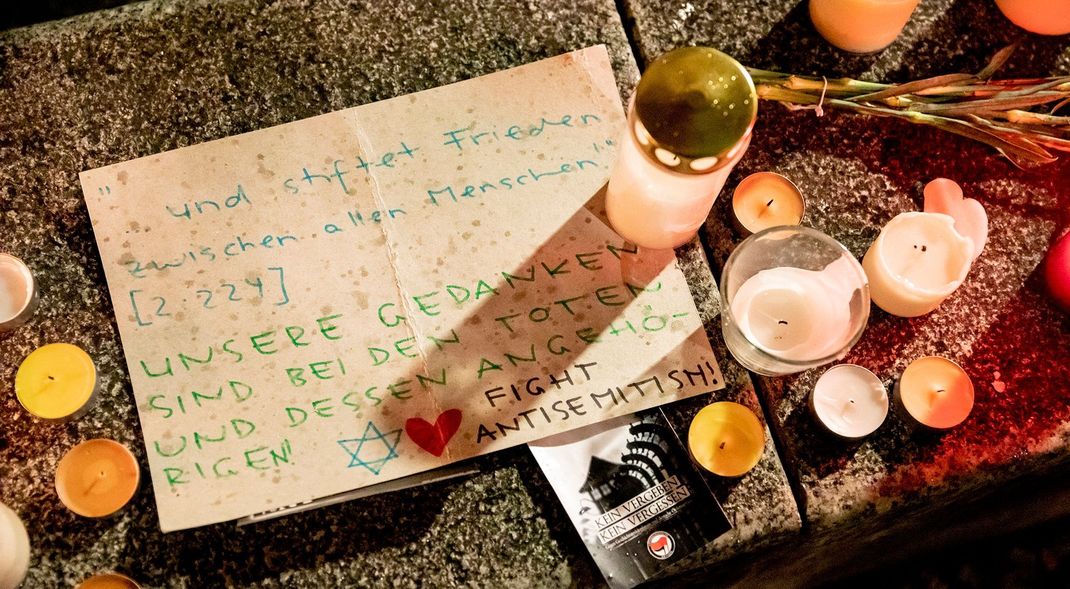 " und stiftet Frieden
zwischen allen Menschen!"
[2:224]
UNSERE GEDANKEN
SIND BEI DEN TOTEN
UND DESSEN ANGEHÖ-
RIGEN!
FIGHT
ANTISEMITISM!
KEIN VERGEBEN
KEIN VERGESSEN